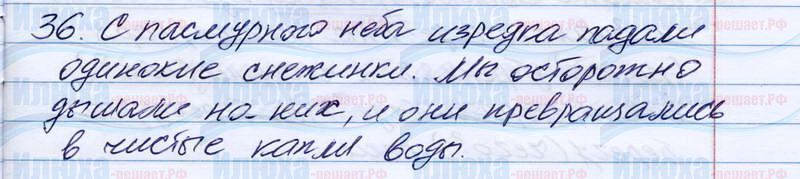 36. С пасмурного неба изредка падали
одинокие снежинки. Мы осторожно
дышали на них, и они превращались
в чистые капли воды.